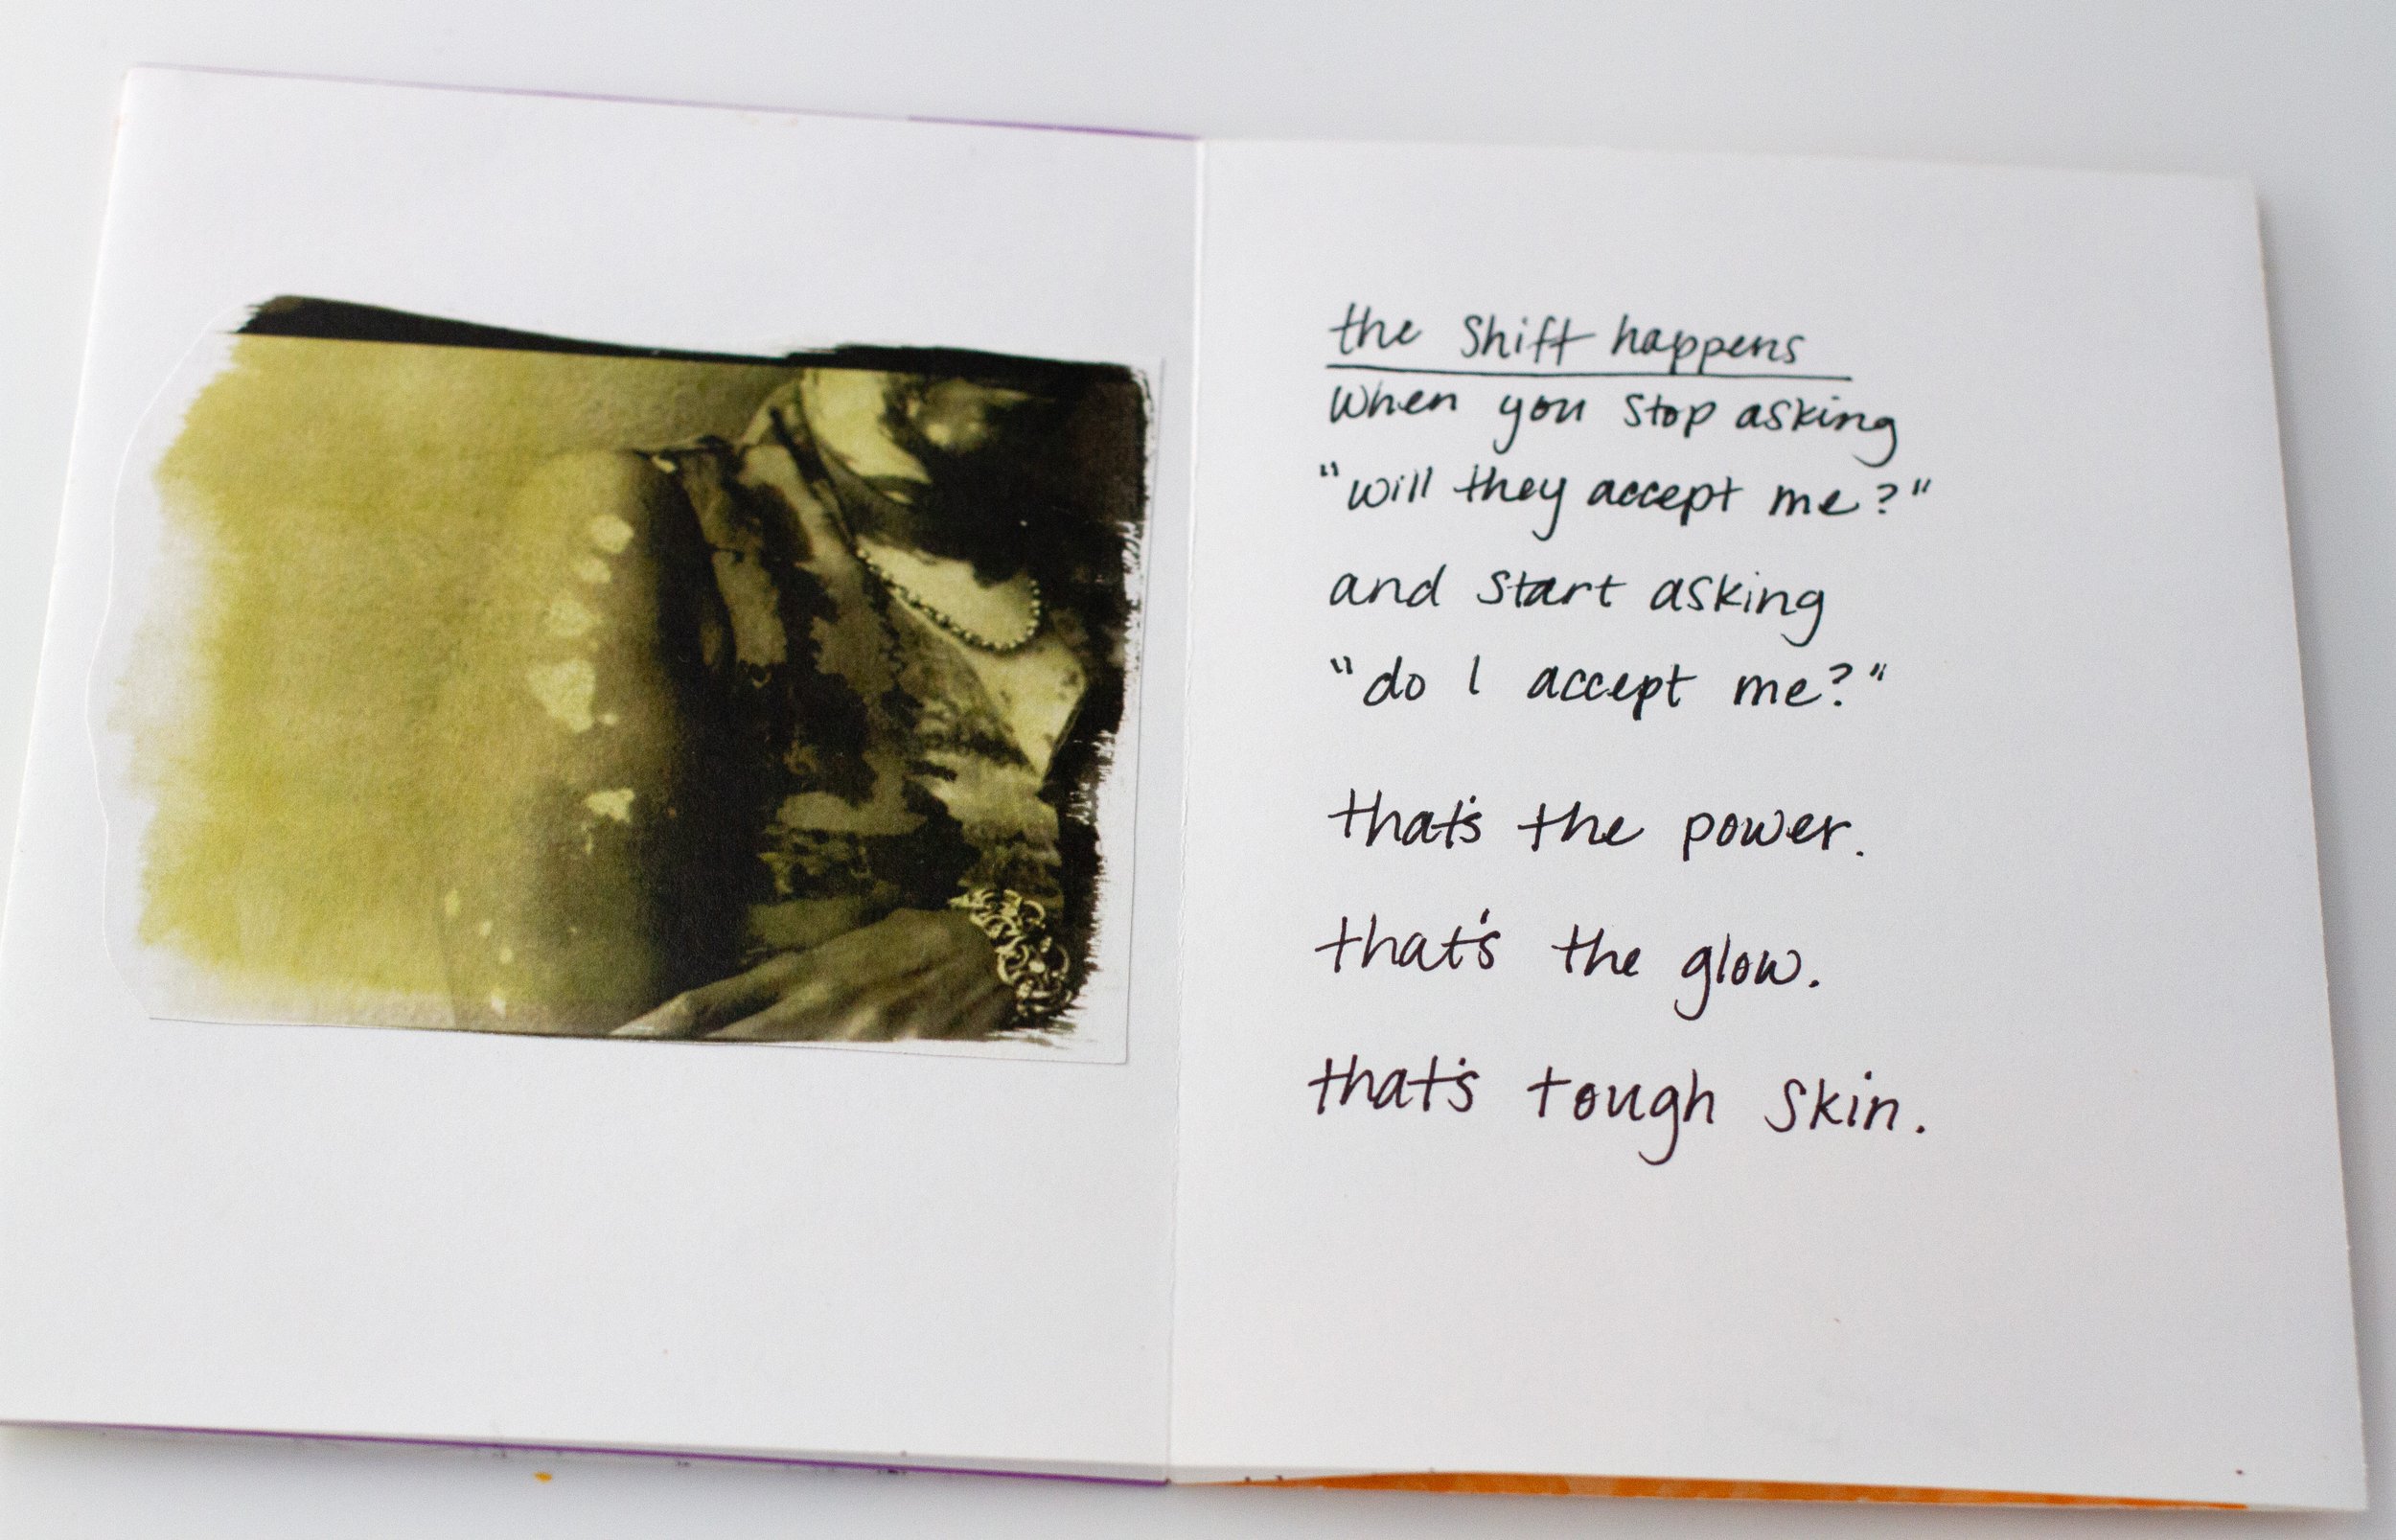 the Shift happens
When you stop asking
"will they accept me?"
and start asking
"do I accept me?"
that's the power.
that's the glow.
that's tough Skin.